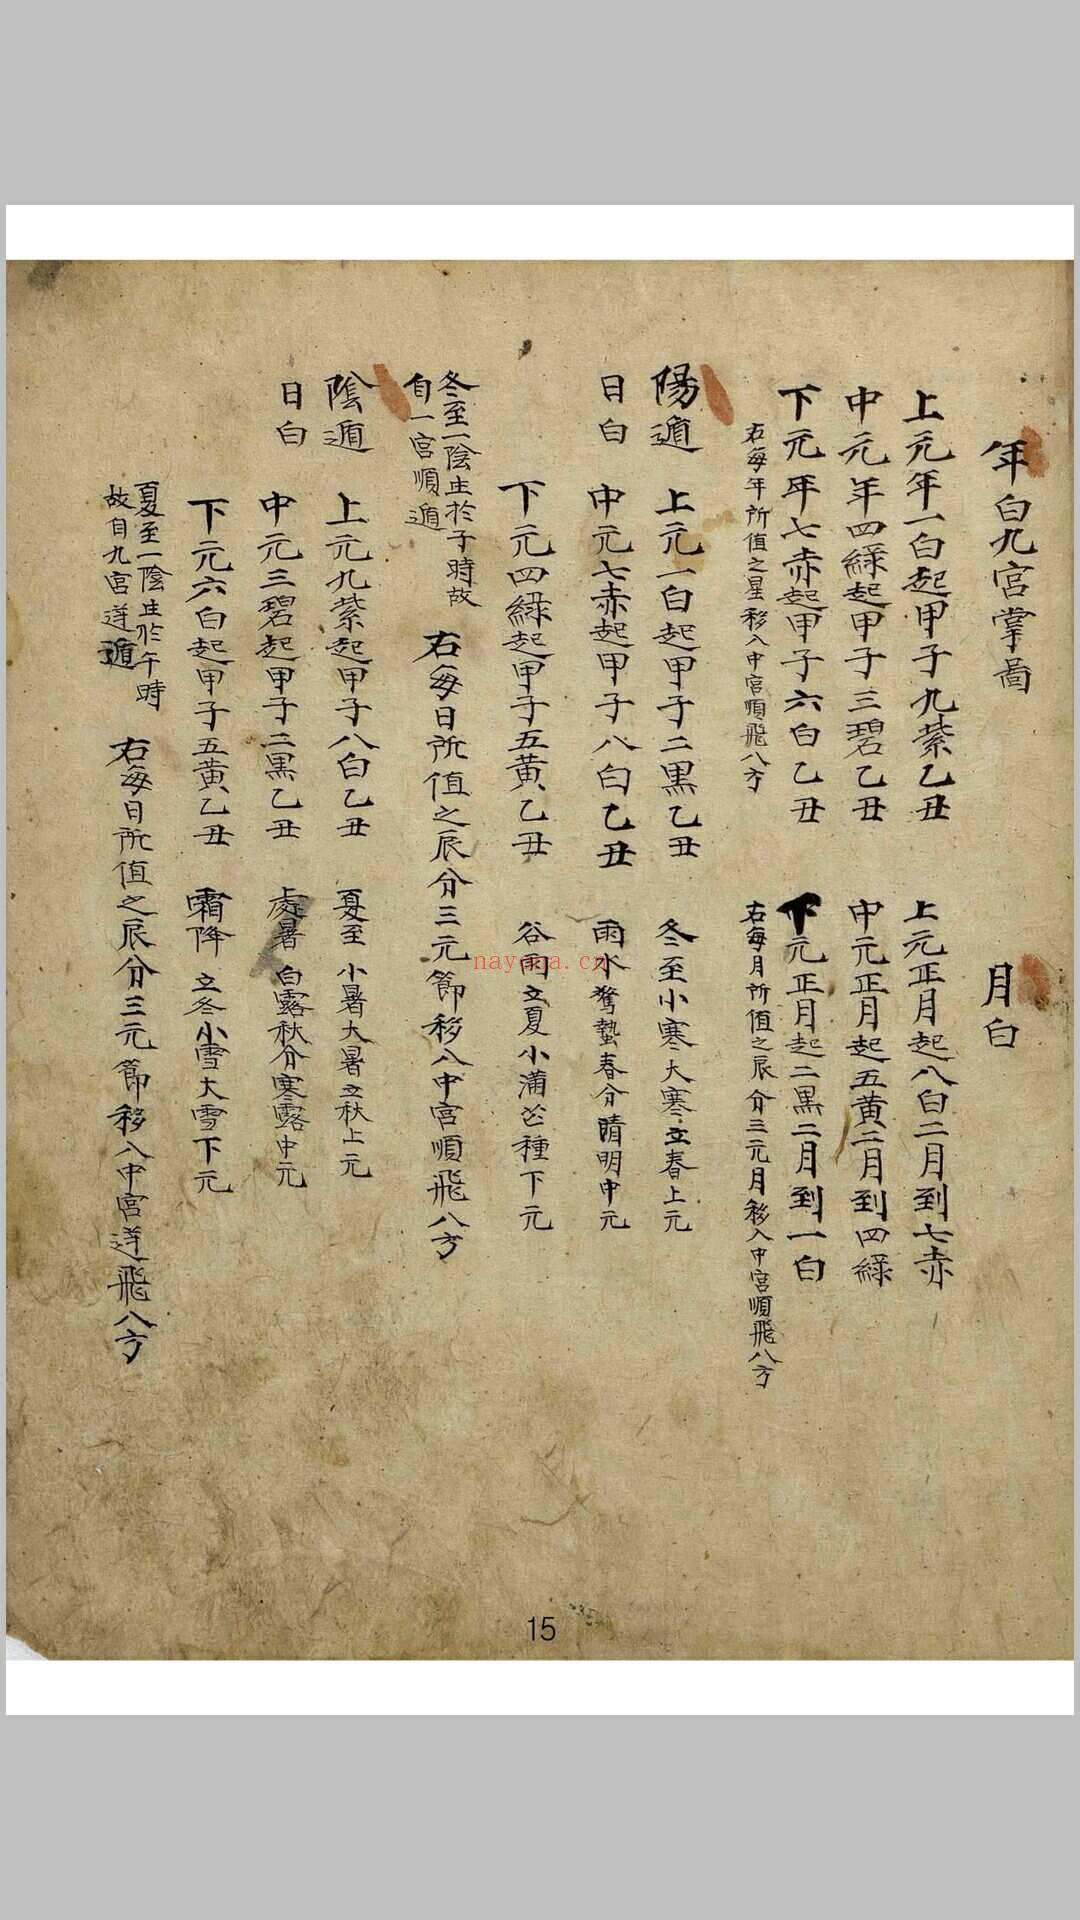 年白九宮掌啚
月白
上元年一白起甲子九紫乙丑
上元正月起八白二月到七赤
中元年四綠起甲子三碧乙丑
中元正月起五黄二月到四綠
下元年七赤起甲子六白乙丑
下元正月起二黒二月到一白
右每年所值之星移入中宮順飛八方
右每月所值之辰分三元月移入中宮順飛八方
陽遁
上元一白起甲子二黒乙丑
冬至小寒大寒立春上元
日白
中元七赤起甲子八白乙丑
雨水驚蟄春分晴明中元
下元四綠起甲子五黄乙丑
谷雨立夏小滿芒種下元
冬至一陰生於子時故
自一宮順遁
右每日所值之辰分三元節移入中宮順飛八方
陰遁
上元九紫起甲子八白乙丑
夏至小暑大暑立秋上元
日白
中元三碧起甲子二黒乙丑
處暑白露秋分寒露中元
下元六白起甲子五黄乙丑
霜降立冬小雪大雪下元
夏至一陰生於午時
故自九宮逆遁
右每日所值之辰分三元節移入中宮逆飛八方
nayona.cn
15